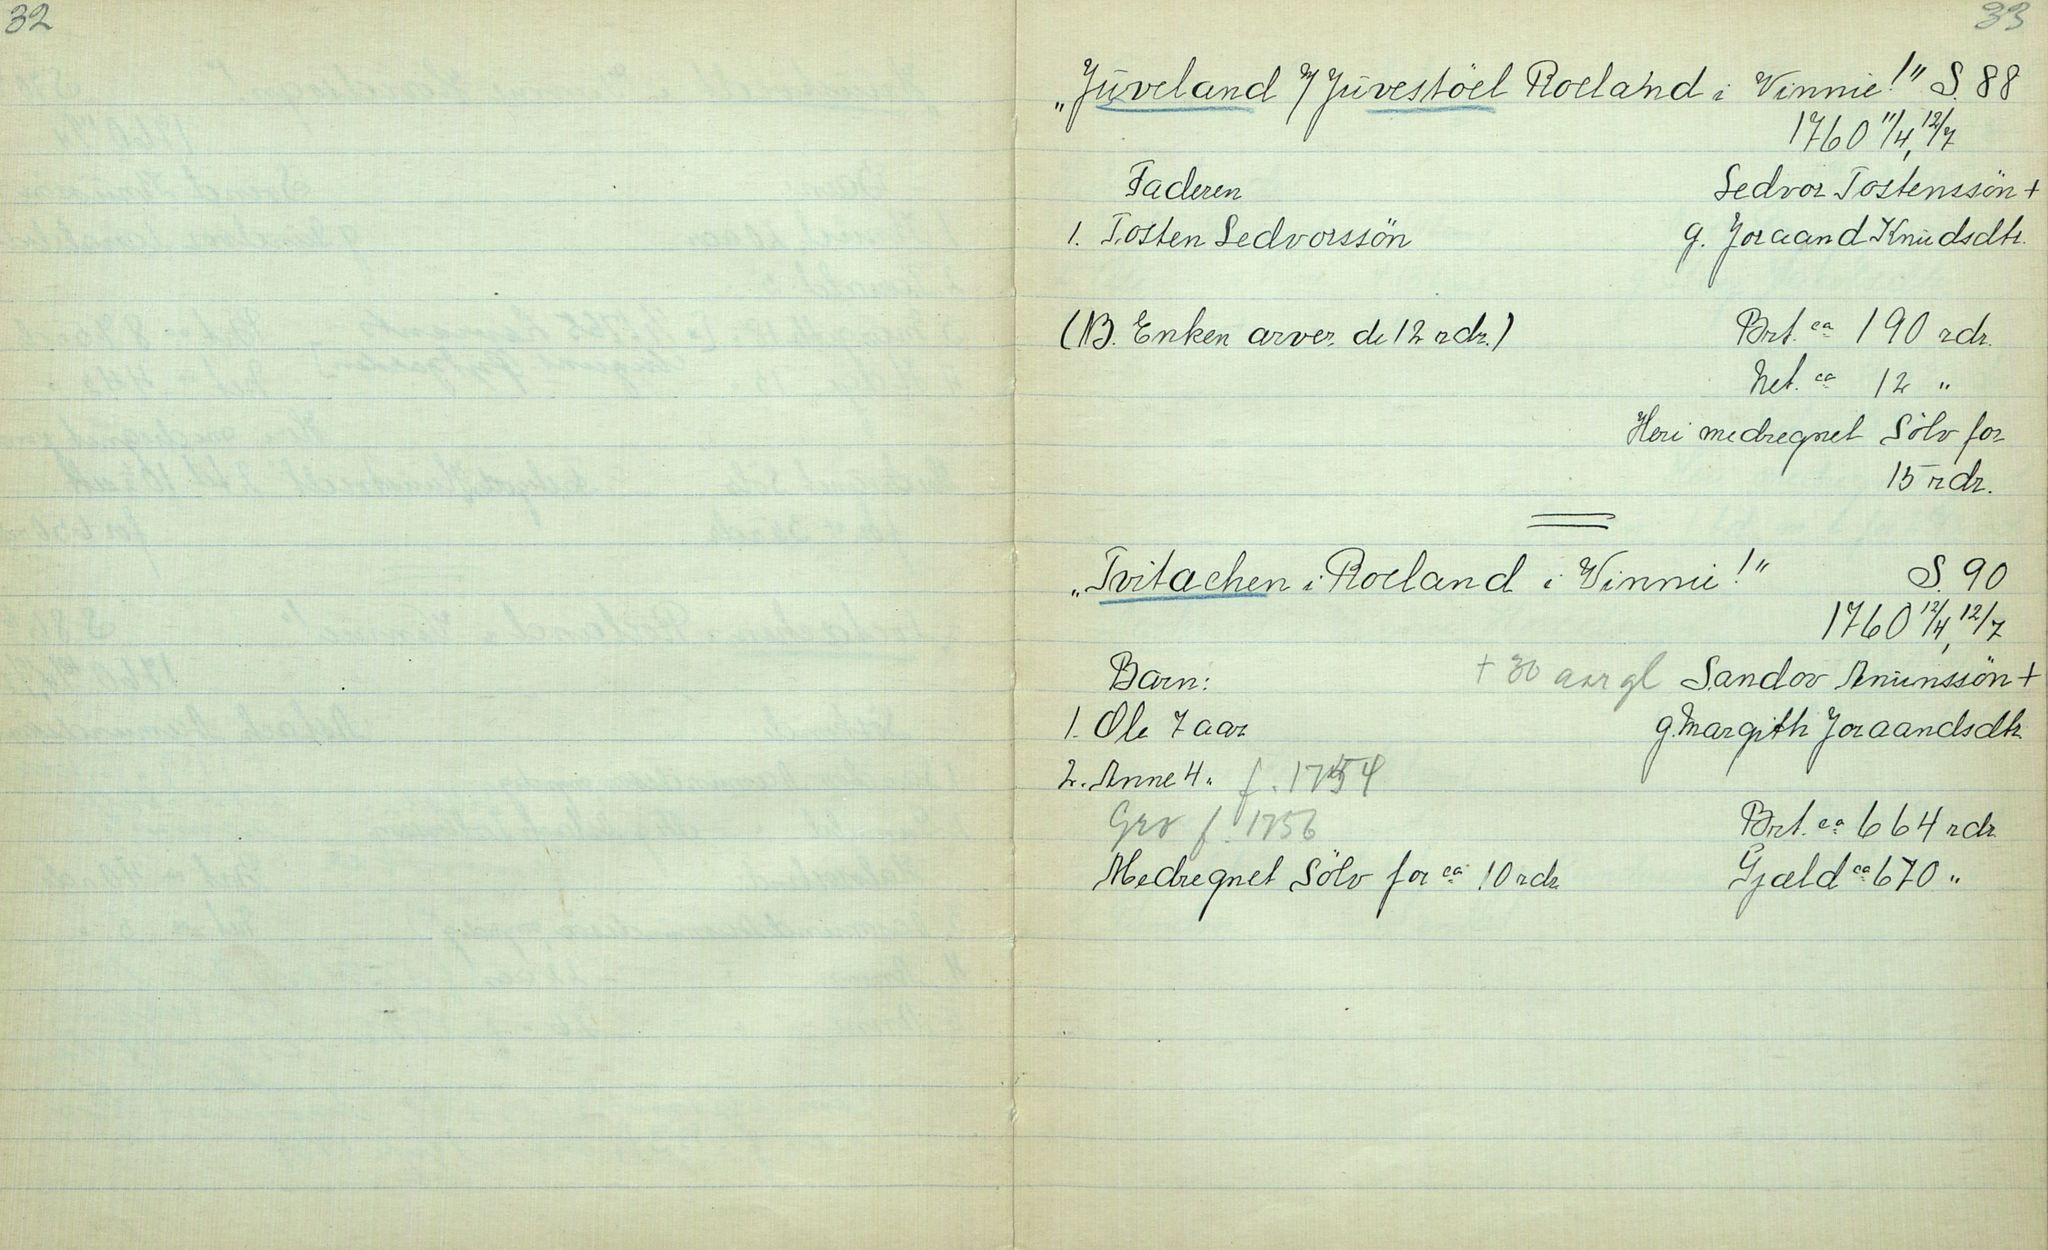 32
33
„Juveland % Juvestöel Roeland i Vinnie!" S. 88
1760 11/4, 12/7
Faderen Sedvor Tostenssön +
1. Tosten Sedvorssön g. Joraand Knudsdtr.
(NB. Enken arver de 12 rdr.) Brt. ca 190 rdr.
Net. ca 12 "
Heri medregnet Sölv for
15 rdr.
„Tvitachen i Roeland i Vinnie!" S. 90
1760 12/4, 12/7
Barn: + 30 aar gl Sandov Anunssön +
1. Ole 7 aar g. Margith Joraandsdtr.
2. Anne 4 " f. 1754
Gro f. 1756 Brt. ca 664 rdr.
Medregnet Sölv for ca 10 rdr. Gjæld ca 670 "